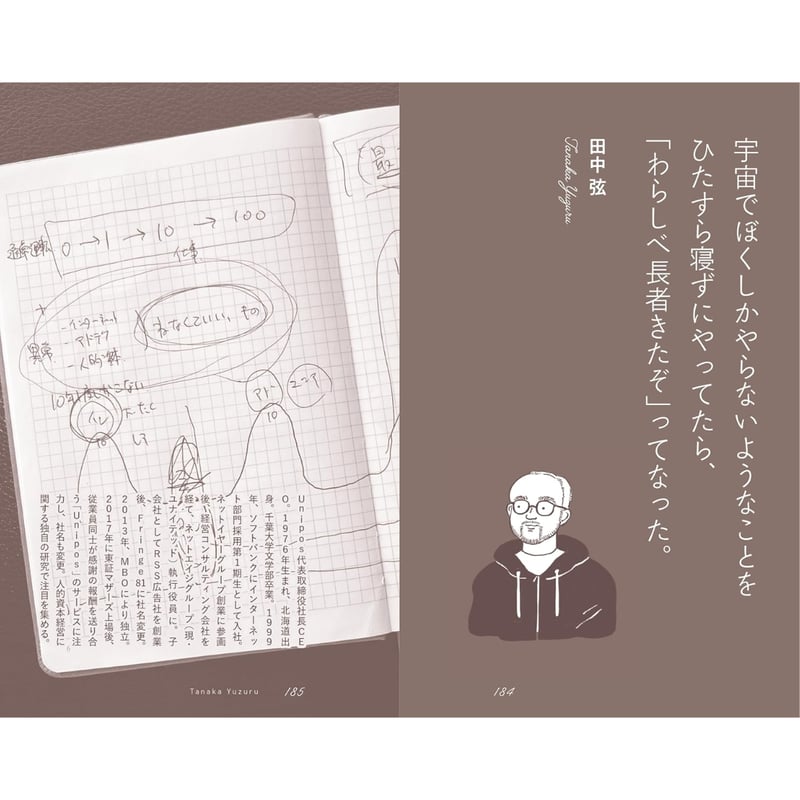 宇宙でぼくしかやらないようなことを
ひたすら寝ずにやってたら、
「わらしべ長者きたぞ」ってなった。
田中弦
Tanaka Yuzuru
184
0→1→10→100
仕事
異常
+
-インターネット
-アドテク
-人的資本
ねなくていい、もの
10年に1度しかこない
イン
10
アド
10
ユニフ
Unipos代表取締役社長CE
O。1976年生まれ、北海道出
身。千葉大学文学部卒業。1999
年、ソフトバンクにインターネッ
ト部門採用第1期生として入社。
ネットイヤーグループ創業に参画
後、経営コンサルティング会社を
経て、ネットエイジグループ（現・
ユナイテッド）執行役員に。子
会社としてRSS広告社を創業
後、Fringe81に社名変更。
2013年、MBOにより独立。
2017年に東証マザーズ上場後、
従業員同士が感謝の報酬を送り合
う「Unipos」のサービスに注
力し、社名も変更。人的資本経営に
関する独自の研究で注目を集める。
Tanaka Yuzuru
185